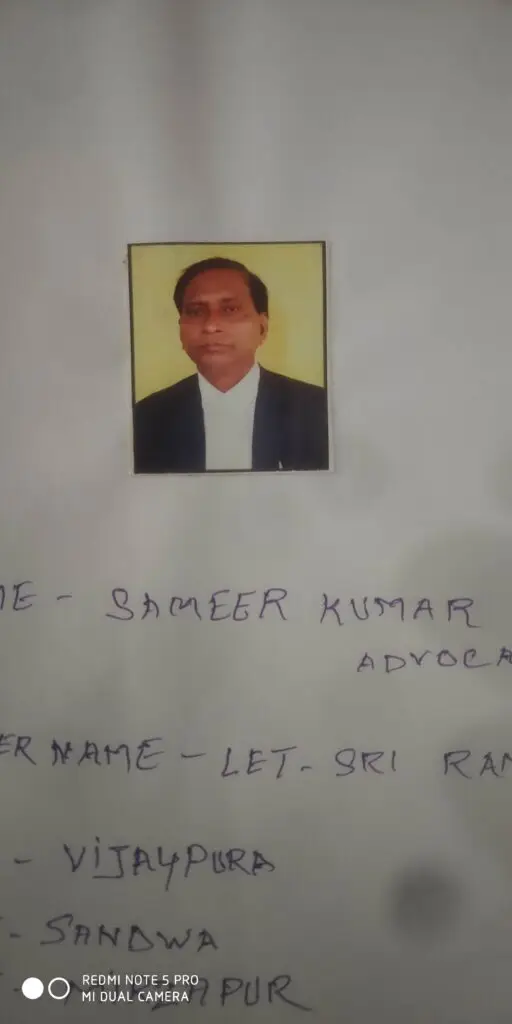 ME - SAMEER KUMAR
ADVOCA
ER NAME - LET. SRI RAM
- VIJAYPURA
- SANDWA
REDMI NOTE 5 PRO
MI DUAL CAMERA